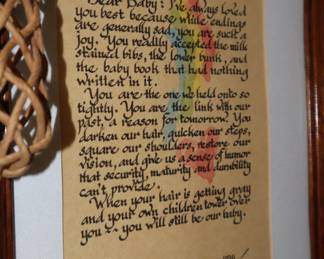 Dear Baby: I've always loved
you best because while endings
are generally sad, you are such a
joy. You readily accepted the milk
stained bibs, the lower bunk, and
the baby book that had nothing
written in it.
You are the one we held onto so
tightly. You are the link with our
past, a reason for tomorrow. You
darken our hair, quicken our steps,
square our shoulders, restore our
vision, and give us a sense of humor
that security, maturity and durability
can't provide.
When your hair is getting gray
and your own children tower over
you ~ you will still be our baby.